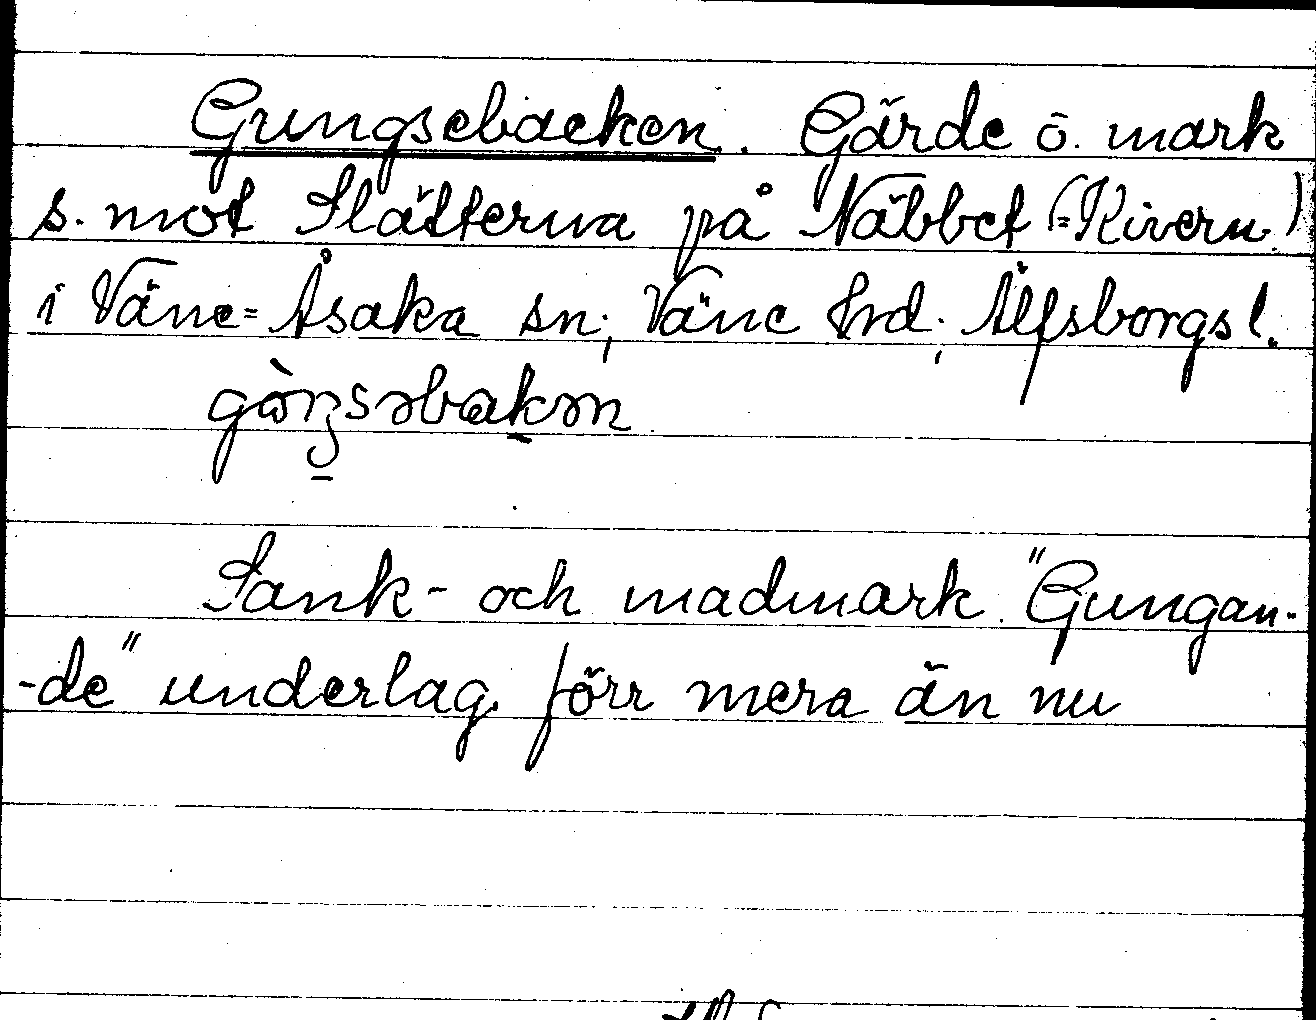 Gungsebacken. Gärde ö. mark
s. mot Slätterna på Näbbet (=Kivern.)
i Väne=Åsaka sn; Väne hrd; Älfsborgs l.
gàŋsəbakən
Sank- och madmark. "Gungan-
-de" underlag. förr mera än nu